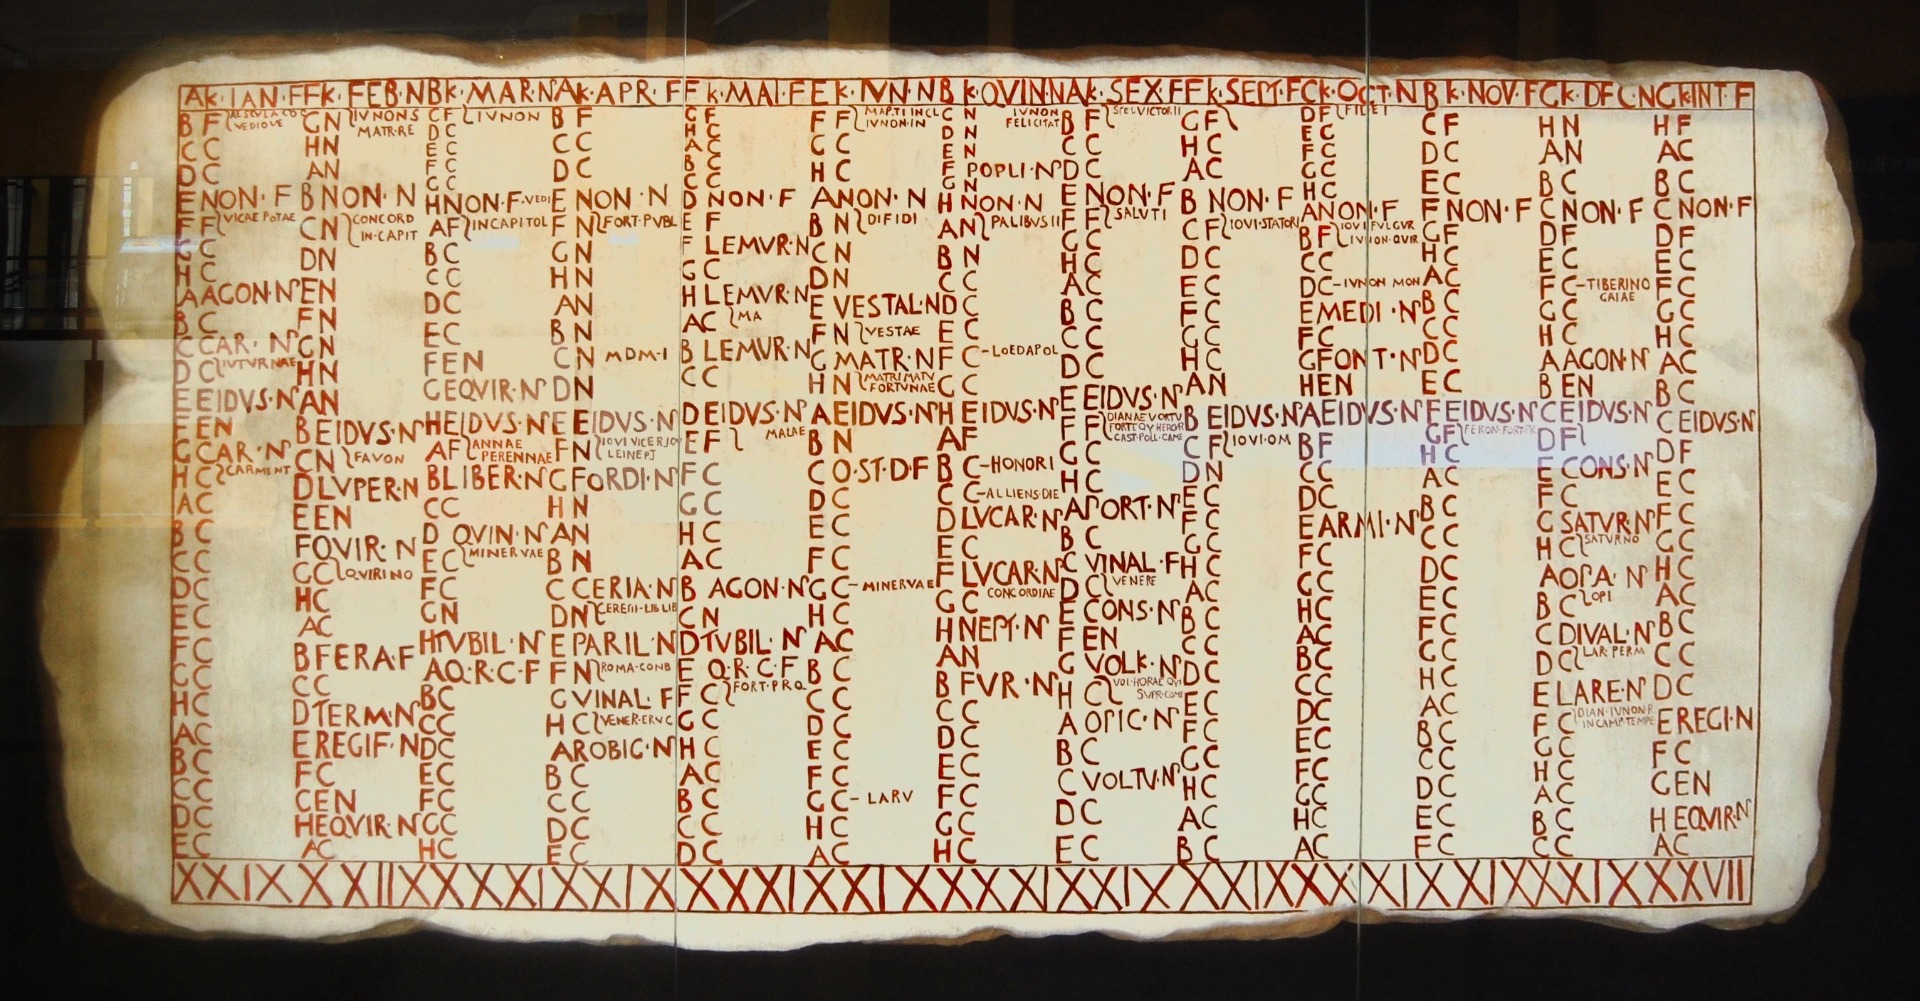 AK·IAN·F
B F AESCVLA CO
VEDIOVE
C C
D C
E NON·F
F F VICAE POTAE
G C
H C
A AGON·N
B C
C CAR·N
D C IVTVRNAE
E EIDVS·N
F EN
G CAR·N
H C CARMENT
A C
B C
C C
D C
E C
F C
G C
H C
A C
B C
C C
D C
E C
XXIX
FK·FEB·N
G N IVNONS
MATR·RE
H N
A N
B NON·N
C N CONCORD
IN·CAPIT
D N
E N
F N
G N
H N
A N
B EIDVS·N
C N FAVON
D LVPER·N
E EN
F QVIR·N
G C QVIRINO
H C
A C
B FERA·F
C C
D TERM·N
E REGIF·N
F C
G EN
H EQVIR·N
A C
XXVIII
BK·MAR·N
C F IVNON
D C
E C
F C
G C
H NON·F·VEDI
A F IN CAPITOL
B C
C C
D C
E C
F EN
G EQVIR·N
H EIDVS·N
A F ANNAE
PERENNAE
B LIBER·N
C C
D QVIN·N
E C MINERVAE
F C
G N
H TVBIL·N
A Q·R·C·F
B C
C C
D C
E C
F C
G C
H C
XXXI
AK·APR·F
B F
C C
D C
E NON·N
F N FORT·PVBL
G N
H N
A N
B N
C N MDM·I
D N
E EIDVS·N
F N IOVI VICERIOV
LEINEPI
G FORDI·N
H N
A N
B N
C CERIA·N
D N CERERI·LIB LIB
E PARIL·N
F N ROMA·COND
G VINAL·F
H C VENER·ERVC
A ROBIG·N
B C
C C
D C
E C
XXIX
FK·MAI·F
G F
H C
A C
B C
C C
D NON·F
E F
F LEMVR·N
G C
H LEMVR·N
A C MA
B LEMVR·N
C C
D EIDVS·N
E F MAIAE
F C
G C
H C
A C
B AGON·N
C N
D TVBIL·N
E Q·R·C·F
F C FORT·PRQ
G C
H C
A C
B C
C C
D C
XXXI
EK·IVN·N
F F MAR·TI IN CL
IVNON·IN
G C
H C
A NON·N
B N DI FIDI
C N
D N
E VESTAL·N
F N VESTAE
G MATR·N
H N MATRI MATV
FORTVNAE
A EIDVS·N
B N
C Q·ST·D·F
D C
E C
F C
G C - MINERVAE
H C
A C
B C
C C
D C
E C
F C
G C - LARV
H C
A C
XXIX
BK·QVIN·N
C N IVNON
FELICITAT
D N
E N
F POPLI·N
G N
H NON·N
A N PALIBVS II
B N
C N
D C
E C
F C - LOEDAPOL
G C
H EIDVS·N
A F
B C - HONORI
C C - ALLIENS·DIE
D LVCAR·N
E C
F LVCAR·N
G C CONCORDIAE
H NEPT·N
A N
B FVR·N
C C
D C
E C
F C
G C
H C
XXXI
AK·SEX·F
B F SPEI VICTOR II
C C
D C
E NON·F
F F SALVTI
G C
H C
A C
B C
C C
D C
E EIDVS·N
F F DIANAE VORTV
FORTE QV HERQR
CAST·POLL·CAME
G C
H C
A PORT·N
B C
C VINAL·F
D C VENERE
E CONS·N
F EN
G VOLK·N
H C VOL·HORAE QVI
SVPR·COME
A OPIC·N
B C
C VOLTV·N
D C
E C
XXIX
FK·SEPT·F
G F
H C
A C
B NON·F
C F IOVI·STATORI
D C
E C
F C
G C
H C
A N
B EIDVS·N
C F IOVI·OM
D N
E C
F C
G C
H C
A C
B C
C C
D C
E C
F C
G C
H C
A C
B C
XXIX
CK·OCT·N
D F FIDEI
E C
F C
G C
H C
A NON·F
B F IOVI FVLGVR
IVNON·QVIR
C C
D C - IVNON MON
E MEDI·N
F C
G FONT·N
H EN
A EIDVS·N
B F
C C
D C
E ARMI·N
F C
G C
H C
A C
B C
C C
D C
E C
F C
G C
H C
A C
XXXI
BK·NOV·F
C F
D C
E C
F NON·F
G F
H C
A C
B C
C C
D C
E C
F EIDVS·N
G F FERON·FORT·PR
H C
A C
B C
C C
D C
E C
F C
G C
H C
A C
B C
C C
D C
E C
F C
XXIX
GK·DEC·N
H N
A N
B C
C NON·F
D F
E C
F C - TIBERINO
GAIAE
G C
H C
A AGON·N
B EN
C EIDVS·N
D F
E CONS·N
F C
G SATVR·N
H C SATVRNO
A OPA·N
B C OPI
C DIVAL·N
D C LAR·PERM
E LARE·N
F C DIAN·IVNON·R
IN CAMP·TEMPE
G C
H C
A C
B C
C C
XXIX
GK·INT·F
H F
A C
B C
C NON·F
D F
E C
F C
G C
H C
A C
B C
C EIDVS·N
D F
E C
F C
G C
H C
A C
B C
C C
D C
E REGI·N
F C
G EN
H EQVIR·N
A C
XXVII